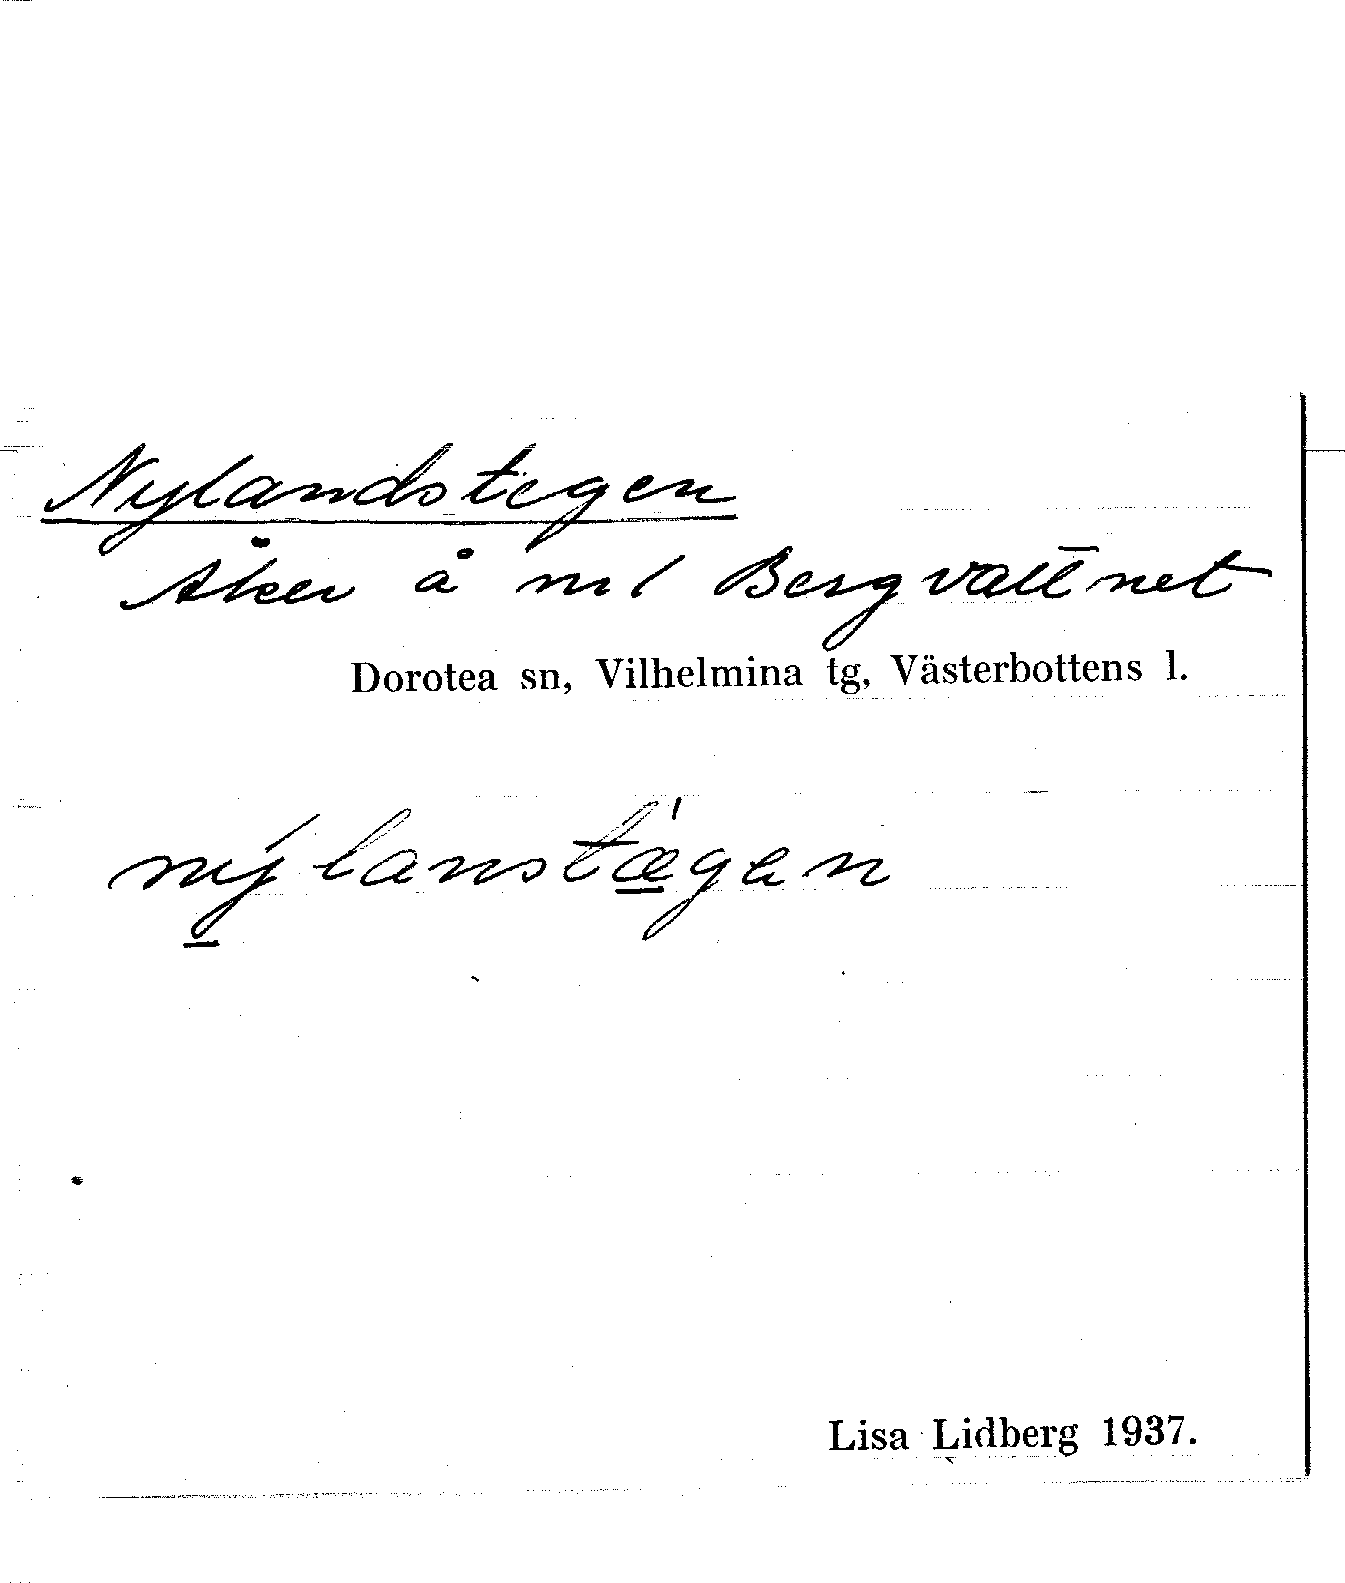 Nylandstegen
Åker å nr 1 Bergvattnet
Dorotea sn, Vilhelmina tg, Västerbottens l.
ný̱lanstǽ̱gen
Lisa Lidberg 1937.